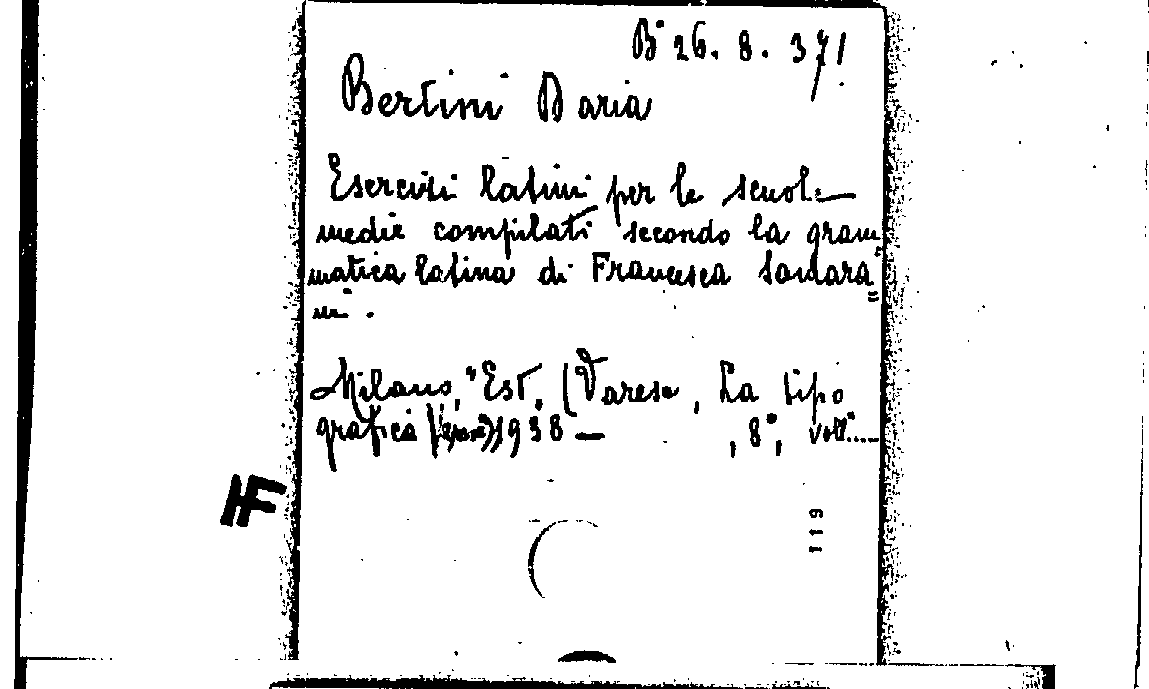 B° 26. 8. 37/.
Bertini Daria
Esercizi latini per le scuole
medie compilati secondo la gram"
matica latina di Francesca Sandara"
ni.
Milano, "Est", (Varese, La tipo
grafica 1938 — , 8°, voll....
119
HF